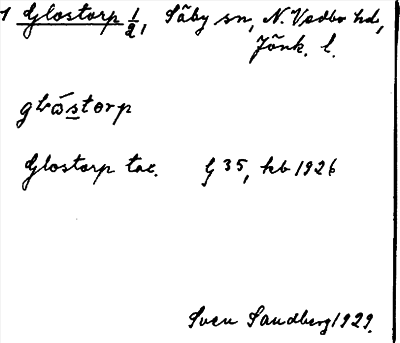 1 Glostorp 1/2, Säby sn, N. Vedbo hd,
Jönk. l.
glåstorp
Glostorp tax. G 35, kb 1926
Sven Sandberg 1929.